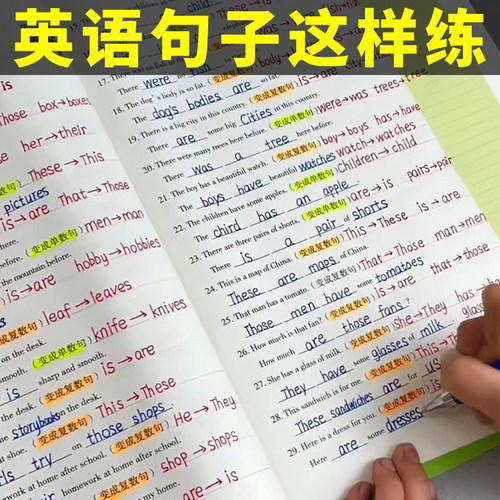 英语句子这样练
is
Those box→boxes
her→their
These→This
pictures
is→are That→Those
here.
before. (变成单数句) men→man
the mountain before.
is→are hobby→hobbies
(变成复数句) leaf→leaves
on the desk.
(变成单数句) knife→knives
smooth.
is sharp and smooth.
(变成复数句) is→are
on the desk.
the storybooks on the desk.
(变成复数句) This→These
try on those shops.
after school. (变成复数句) He→They
homework at home after school.
homework at home after school. shop→shops
(变成复数句)
my home. are→is
child
17. There was no fish in
There were no fish
18. The dog's body is so fat. (变成复数句) is→are
The dog's bodies are so fat.
19. There is a big city in this country. (变成复数句) is→are city→cities
There are some big cities in this country.
20. There were many trees here before. (变成单数句) were→was trees→tree
There was a tree here before.
21. The boy has a beautiful watch. (变成复数句) boy→boys has→have
The boys have beautiful watches watch→watches
22. The children have some apples. (变成单数句) children→child
The child has an apple.
23. There are three pairs of shorts. (变成单数句) are→is pairs→pair
There is a pair of shorts
24. This is a map of China. (变成复数句) This→These is→are
These are maps of China.
25. That man has a tomato. (变成复数句) That→Those man→men
Those men have some tomatoes
26. How much is that fan? (变成复数句) is→are that→those
How much are those fans?
27. She has a glass of milk. (变成复数句) She→They has→
They have some glasses of milk
28. This sandwich is for me. (变成复数句) This→These
These sandwiches are for us
29. Here is a dress for you. (变成复数句) is→
Here are some dresses